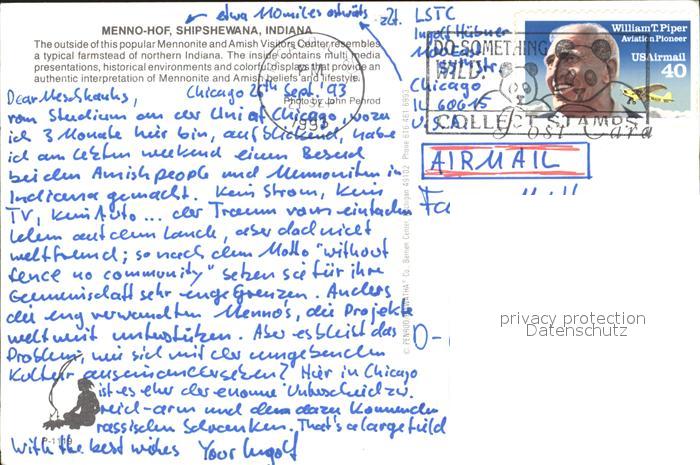 etwa 110 miles ostwärts
MENNO-HOF, SHIPSHEWANA, INDIANA
The outside of this popular Mennonite and Amish Visitors Center resembles
a typical farmstead of northern Indiana. The inside contains multi media
presentations, historical environments and colorful displays that provide an
authentic interpretation of Mennonite and Amish beliefs and lifestyle.
Photo by John Penrod
Chicago 26th Sept. 93
vom Studium an der Uni of Chicago, wozu
ich 3 Monate hier bin, aufblickend, habe
ich am letzten weekend einen Besuch
bei den Amish people und Mennoniten in
Indiana gemacht. Kein Strom, kein
TV, kein Auto ... der Traum vom einfachen
Leben auf dem Lande, aber doch nicht
weltfremd; so nach dem Motto "without
fence no community" setzen sie für ihre
Gemeinschaft sehr enge Grenzen. Anders
die eng verwandten Menno's, die Projekte
weltweit unterstützen. Aber es bleibt das
Problem, wie sich mit der umgebenden
Kultur auseinandersetzen? Hier in Chicago
ist es eher der enorme Unterschied zw.
reich-arm und dem dazu kommenden
rassischen Schranken. That's a large field
With the best wishes Your Ingolf
P-1119
zZt. LSTC
Ingolf Hübner
Chicago
IL 60615
U.S.A.
1993
DO SOMETHING
WILD!
COLLECT STAMPS
Post Card
William T. Piper
Aviation Pioneer
US Airmail
40
AIRMAIL
Fa
D-
privacy protection
Datenschutz